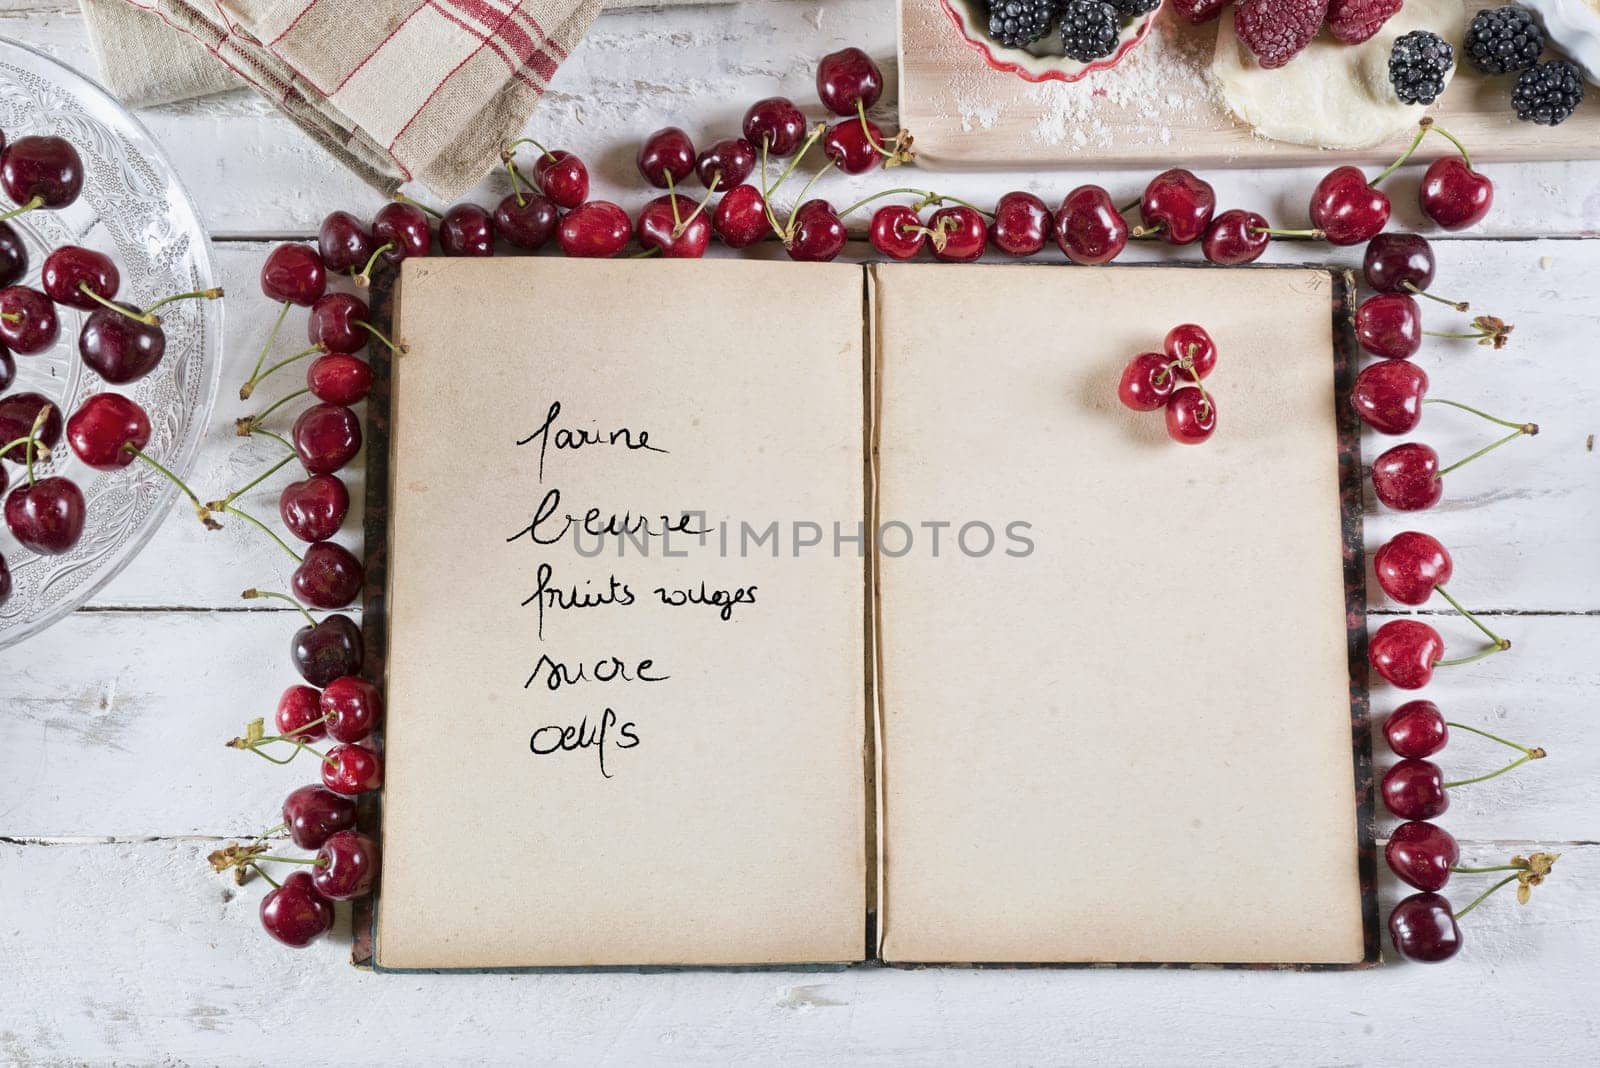 farine
beurre
UNLIMPHOTOS
fruits rouges
sucre
oeufs